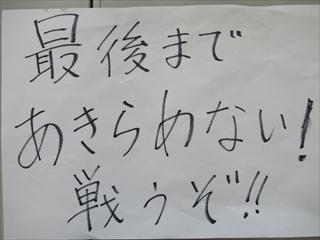 最後まで
あきらめない!
戦うぞ!!